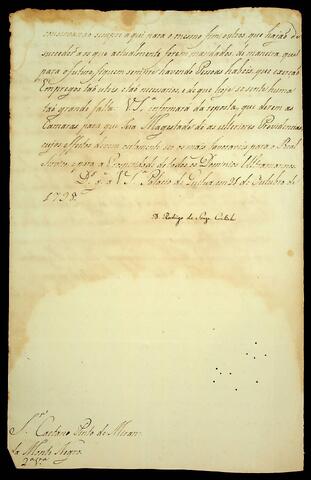 conservando sempre aqui para o mesmo fim outros que hajão de
succeder aos que actualmente forem mandados, de maneira, que
para o futuro fiquem sempre havendo Pessoas habeis que exerção
Empregos tão uteis e tão necessarios, e de que hoje se sente huma
tão grande falta. V. S.ª informará da reposta, que derem as
Camaras, para que Sua Magestade dê as ulteriores Providencias,
cujos effeitos devem certamente ser os mais favoraveis para o Real
Serviço, e para a Prosperidade de todos os Dominios Ultramarinos.
D.s g.e a V. S.ª Palacio de Queluz em 21 de Outubro de
1798.
D. Rodrigo de Souza Coutinho
S.r Caetano Pinto de Miran-
da Monte Negro
2.ª via